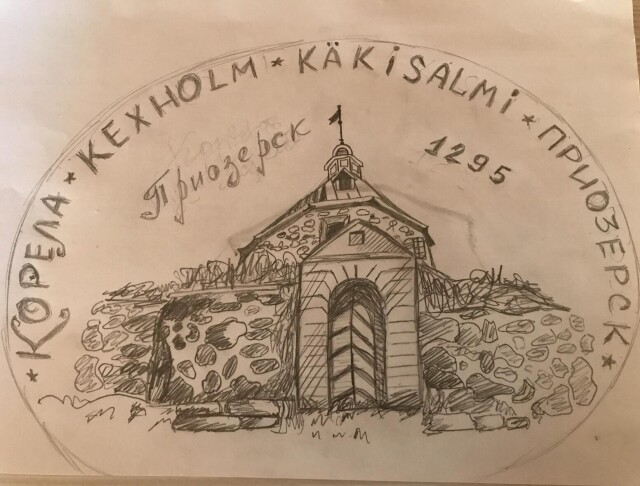 * КОРЕЛА * KEXHOLM * KÄKISALMI * ПРИОЗЕРСК *
Приозерск
1295